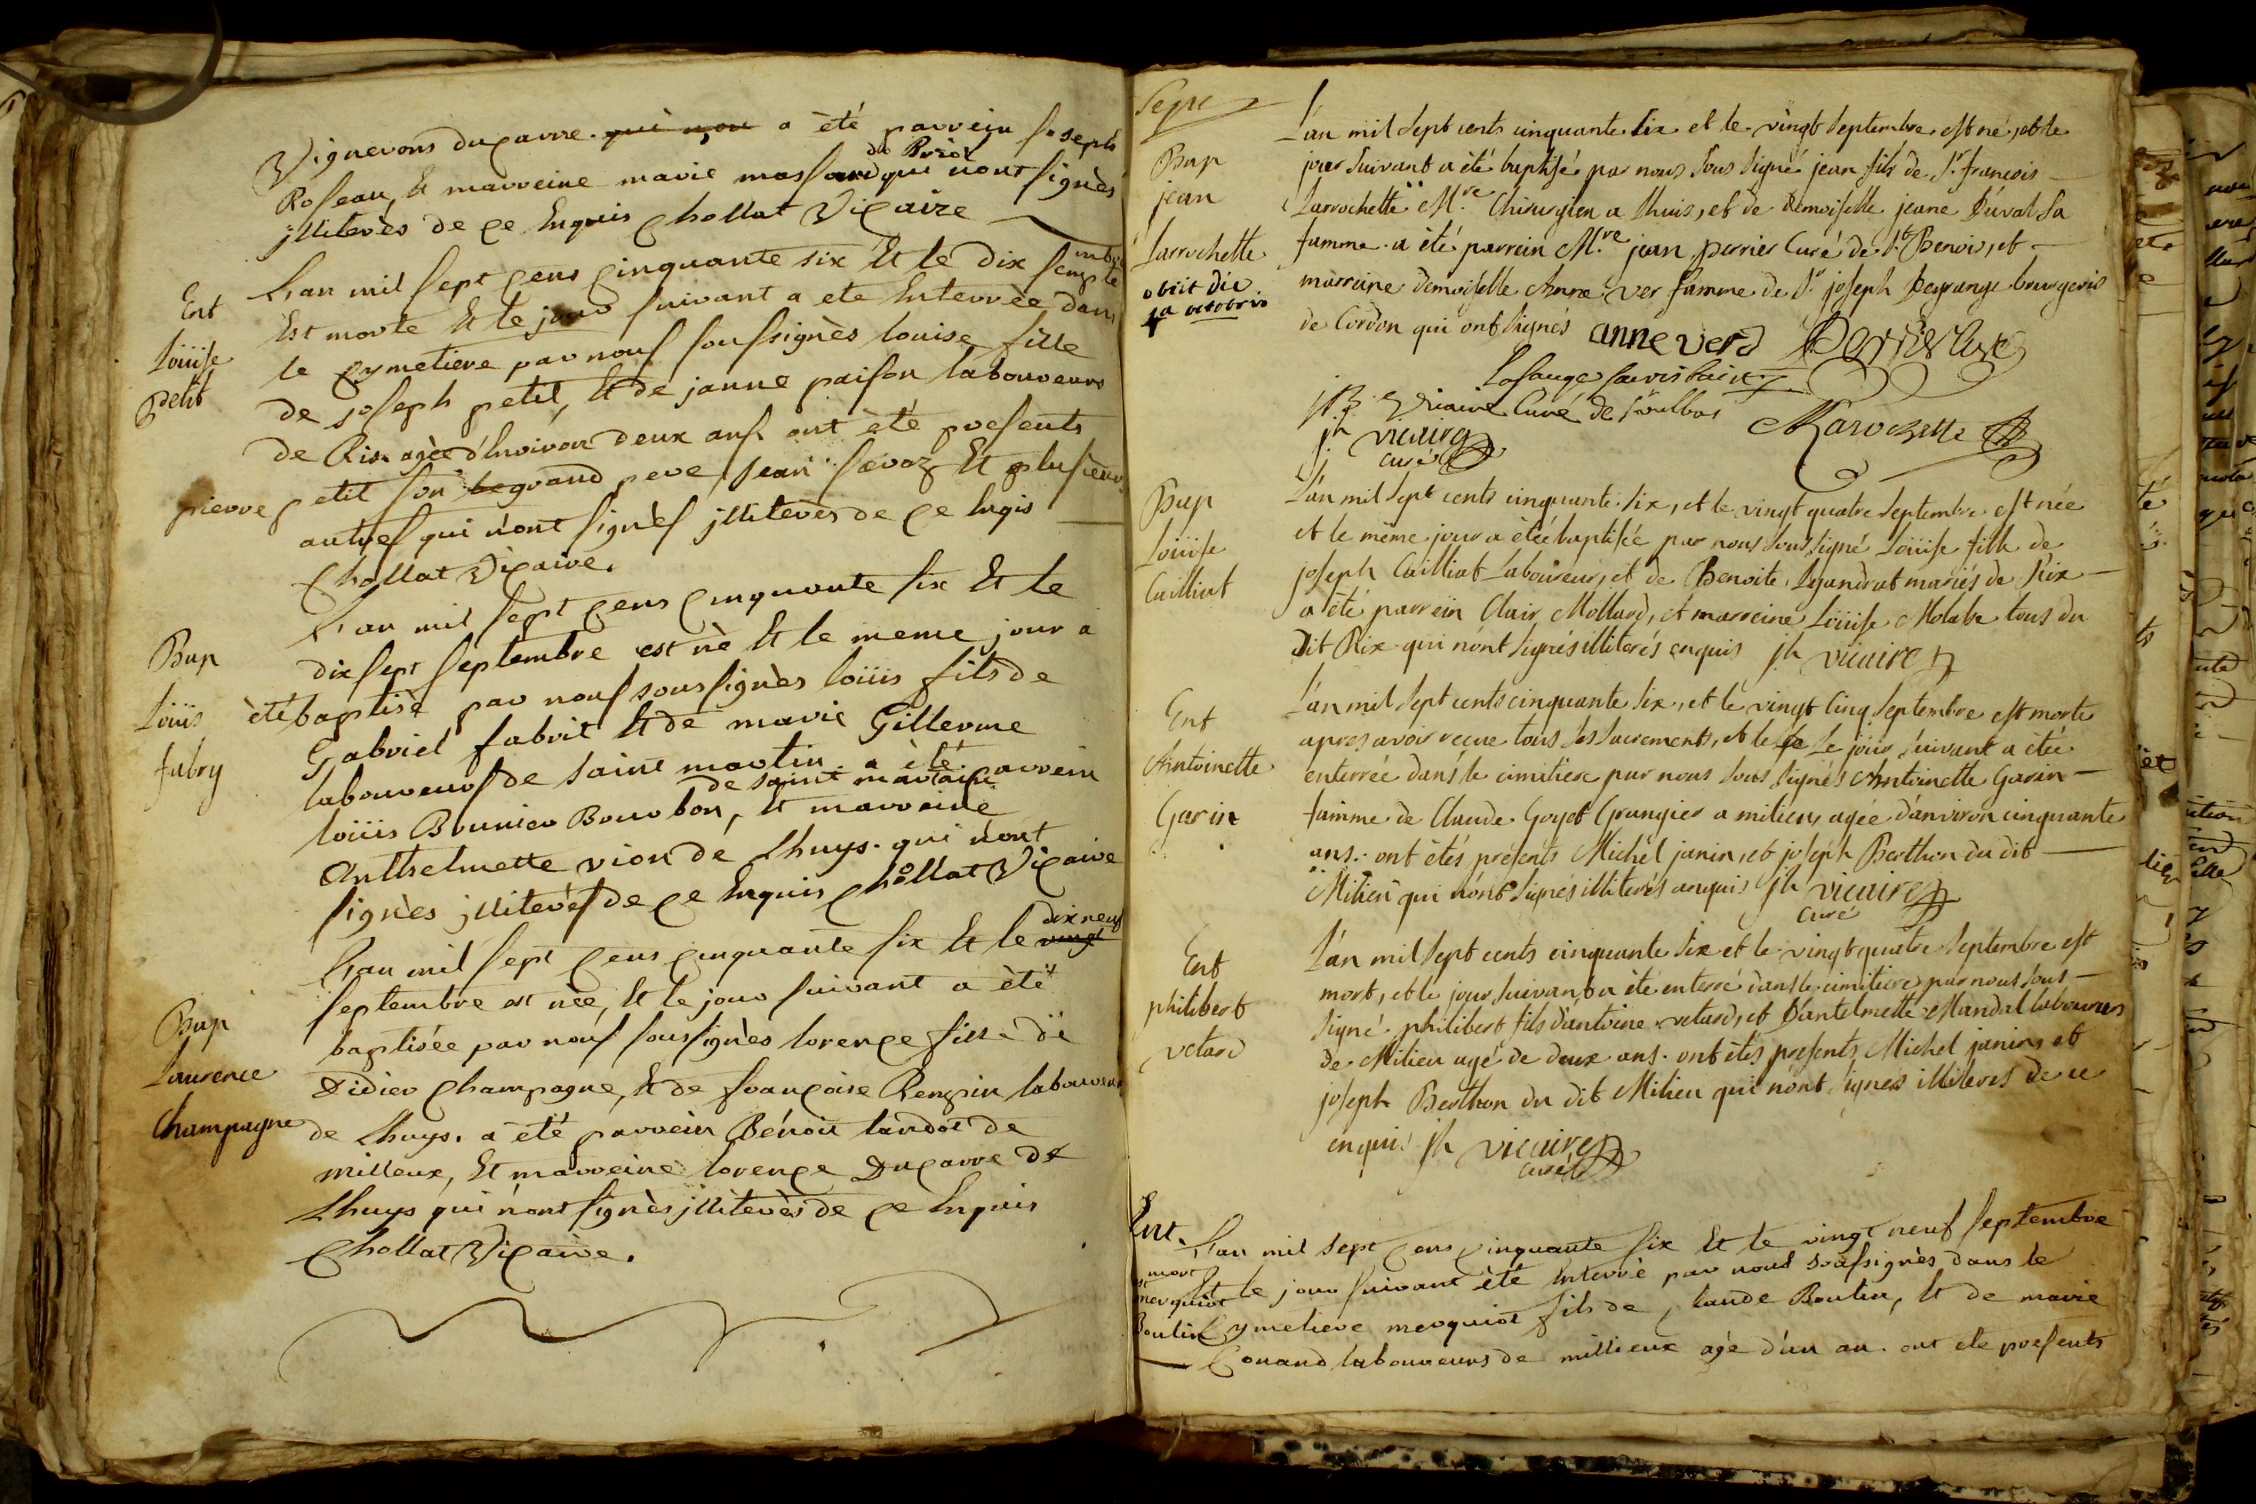 Vignerons ducarre. qui non a èté parrein Joseph
Roseau, Et marreine marie massard du Priol qui nont signès
jlliterès de ce Enquis Chollat Vicaire
Ent
Loüise
petit
L'an mil sept cens cinquante six Et le dix septembre
Est morte Et le jour suivant a ete Enterrèe dans
le cymetiere par nous soussignès louise fille
de joseph petit, Et de janne paison laboureurs
de Rix agèe d'Environ deux ans ont èté presents
pierre petit son grand pere Jean Et plusieurs
autres qui n'ont signès jlliterès de ce Enqis
Chollat Vicaire.
Bap
Loüis
fabry
L'an mil sept cens cinquante six Et le
dix sept septembre est nè Et le meme jour a
èté baptisè par nous soussignès loüis fils de
Gabriel fabrit Et de marie Gillerme
laboureurs de saint martin. a èté parrein
loüis Brunier Bourbon, de saint martin Et marreine
Anthelmette vion de Lhuys. qui n'ont
signès jlliterès de ce Enquis Chollat Vicaire
Bap
Laurence
Champagne
L'an mil sept cens cinquante six Et le vingt dix neuf
septembre est nèe, Et le jour suivant a èté
baptisèe par nous soussignès lorence fille de
Didier Champagne, Et de françoise laboureurs
de Lhuys. a èté parrein Bénoit landot de
milleux, Et marreine lorence Ducarre de
Lhuys qui n'ont signès jlliterès de ce Enquis
Chollat Vicaire.
Sepre
Bap
jean
Larrochette
obiit die
1a octobris
L'an mil sept cents cinquante six et le vingt septembre est né, et le
jour suivant a èté baptisé par nous sous signé jean fils de Sr. francois
Larrochette Mre. Chirurgien a lhuis, et de Demoiselle jeane Duval sa
famme. a èté parrein Mre. jean perrier Curé de St. Benois, et
marreine demoiselle Anne Ver famme de Sr. joseph Degrange bourgeois
de Cordon qui ont signés anne verd Perrier Curé
curé de
jh vicaire
curé
Marochette
Bap
Loüise
Cailliat
L'an mil sept cents cinquante six, et le vingt quatre septembre est née
et le même jour a étée baptisée par nous sous signé Loüise fille de
joseph Cailliat Laboureur, et de Benoite mariés de Rix
a èté parrein Clair Mollard, et marreine Loüise Molabe tous du
Dit Rix qui n'ont signés illiterés enquis jh vicaire
Ent
Antoinette
Garin
L'an mil sept cents cinquante six, et le vingt Cinq septembre est morte
apres avoir reçue tous les sacrements, et le le jour suivant a étée
enterrée dans le cimitiere par nous sous signés Antoinette Garin
famme de Claude Goyet Grangier a milieu agée d'anviron cinquante
ans. ont étés présents Michel janin, et joseph Berthon du dit
Milieu qui n'ont signés illiterés anquis jh vicaire
curé
Ent
philibert
vetard
L'an mil sept cents cinquante six et le vingt quatre septembre est
mort, et le jour suivant a èté enterré dans le cimitiere par nous sous
signé philibert fils d'antoine vetard, et D'antelmette Mandal laboureurs
de Milieu agé de deux ans. ont étés presents Michel janin, et
joseph Berthon du dit Milieu qui n'ont signés illiterés de ce
enquis jh vicaire
curé
Ent.
mort
merquiot
Boutin
L'an mil sept cens cinquante six Et le vingt neuf septembre
Et le jour suivant èté Enterrè par nous soussignès dans le
Cymetiere merquiot fils de claude Boutin, Et de marie
Conand laboureurs de millieux agè d'un an. ont ete presents